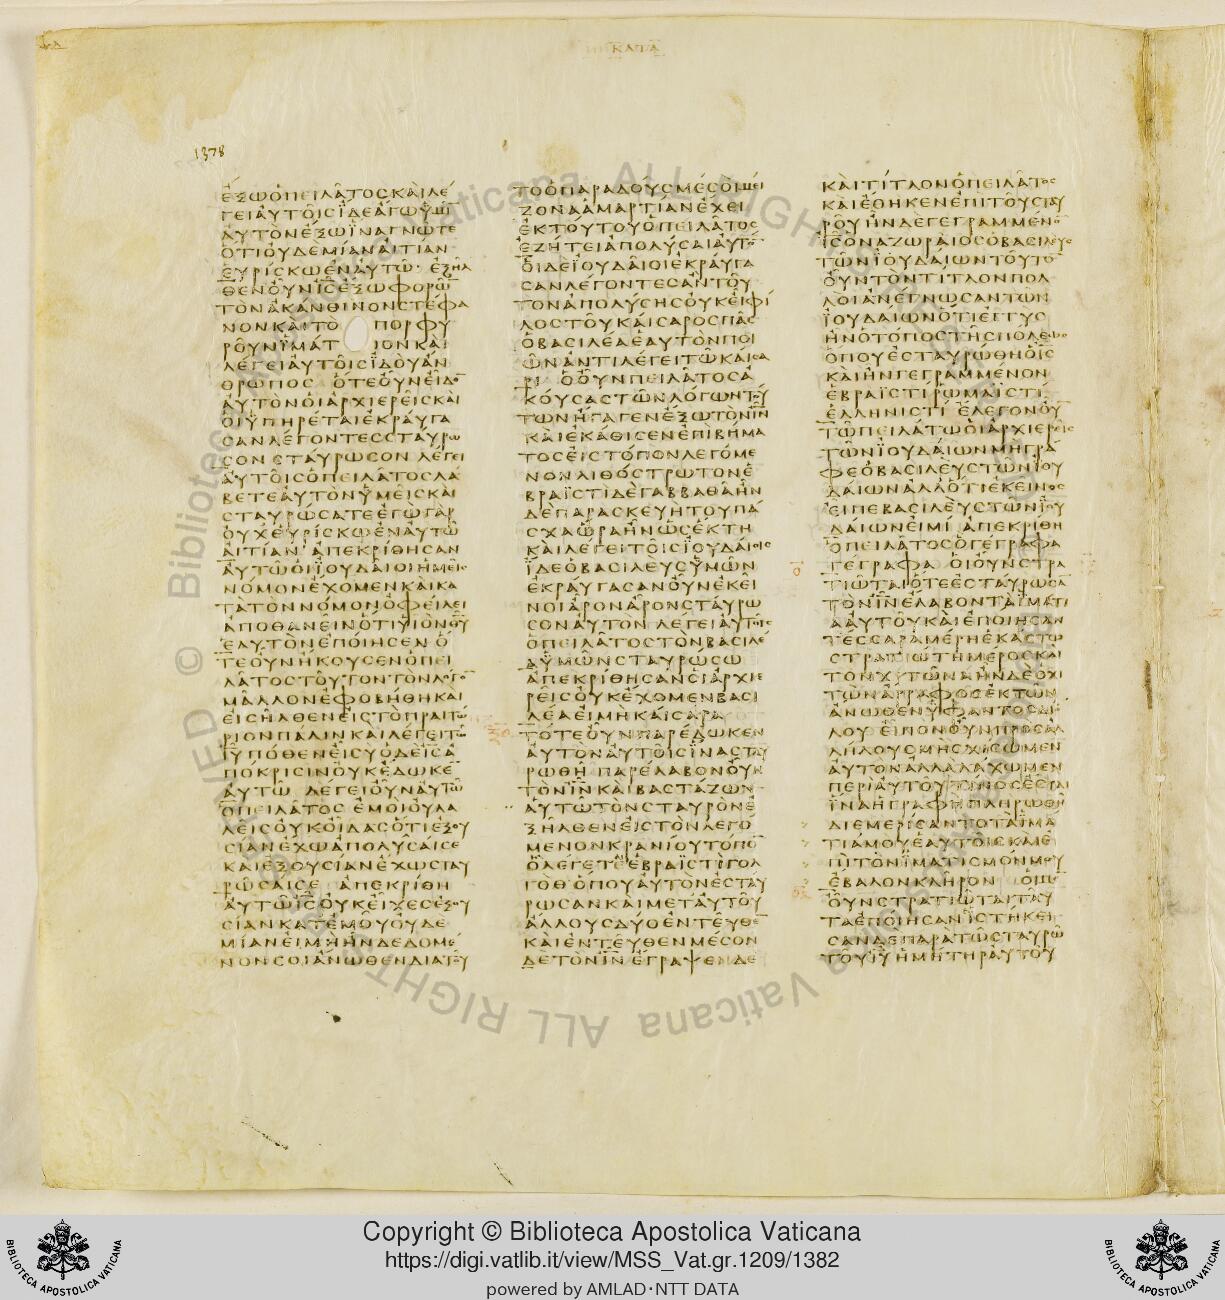 ΚΑΤΑ
1378
ΕΞΩΟΠΕΙΛΑΤΟΣΚΑΙΛΕ
ΓΕΙΑΥΤΟΙΣΙΔΕΑΓΩΫΜΙ
ΑΥΤΟΝΕΞΩΪΝΑΓΝΩΤΕ
ΟΤΙΟΥΔΕΜΙΑΝΑΙΤΙΑΝ
ΕΥΡΙΣΚΩΕΝΑΥΤΩ ΕΞΗΛ
ΘΕΝΟΥΝΙ̅Σ̅ΕΞΩΦΟΡΩ̅
ΤΟΝΑΚΑΝΘΙΝΟΝΣΤΕΦΑ
ΝΟΝΚΑΙΤΟ ΠΟΡΦΥ
ΡΟΥΝΪΜΑΤ ΙΟΝΚΑΙ
ΛΕΓΕΙΑΥΤΟΙΣΙΔΟΥΑΝ
ΘΡΩΠΟΣ ΟΤΕΟΥΝΕΙΔΟ̅
ΑΥΤΟΝΟΙΑΡΧΙΕΡΕΙΣΚΑΙ
ΟΙΫΠΗΡΕΤΑΙΕΚΡΑΥΓΑ
ΣΑΝΛΕΓΟΝΤΕΣΣΤΑΥΡΩ
ΣΟΝΣΤΑΥΡΩΣΟΝ ΛΕΓΕΙ
ΑΥΤΟΙΣΟΠΕΙΛΑΤΟΣΛΑ
ΒΕΤΕΑΥΤΟΝΫΜΕΙΣΚΑΙ
ΣΤΑΥΡΩΣΑΤΕΕΓΩΓΑΡ
ΟΥΧΕΥΡΙΣΚΩΕΝΑΥΤΩ
ΑΙΤΙΑΝ ΑΠΕΚΡΙΘΗΣΑΝ
ΑΥΤΩΟΙΪΟΥΔΑΙΟΙΗΜΕΙΣ
ΝΟΜΟΝΕΧΟΜΕΝΚΑΙΚΑ
ΤΑΤΟΝΝΟΜΟΝΟΦΕΙΛΕΙ
ΑΠΟΘΑΝΕΙΝΟΤΙΥΙΟΝΘ̅Υ̅
ΕΑΥΤΟΝΕΠΟΙΗΣΕΝ Ο
ΤΕΟΥΝΗΚΟΥΣΕΝΟΠΕΙ
ΛΑΤΟΣΤΟΥΤΟΝΤΟΝΛΟΓΟ̅
ΜΑΛΛΟΝΕΦΟΒΗΘΗΚΑΙ
ΕΙΣΗΛΘΕΝΕΙΣΤΟΠΡΑΙΤΩ
ΡΙΟΝΠΑΛΙΝΚΑΙΛΕΓΕΙΤΩ
Ι̅Υ̅ΠΟΘΕΝΕΙΣΥΟΔΕΙ̅Σ̅Α
ΠΟΚΡΙΣΙΝΟΥΚΕΔΩΚΕ̅
ΑΥΤΩ ΛΕΓΕΙΟΥΝΑΥΤΩ
ΟΠΕΙΛΑΤΟΣ ΕΜΟΙΟΥΛΑ
ΛΕΙΣΟΥΚΟΙΔΑΣΟΤΙΕΞΟΥ
ΣΙΑΝΕΧΩΑΠΟΛΥΣΑΙΣΕ
ΚΑΙΕΞΟΥΣΙΑΝΕΧΩΣΤΑΥ
ΡΩΣΑΙΣΕ ΑΠΕΚΡΙΘΗ
ΑΥΤΩΙ̅Σ̅ΟΥΚΕΙΧΕΣΕΞΟΥ
ΣΙΑΝΚΑΤΕΜΟΥΟΥΔΕ
ΜΙΑΝΕΙΜΗΗΝΔΕΔΟΜΕ
ΝΟΝΣΟΙΑΝΩΘΕΝΔΙΑΤΟΥ
ΤΟΟΠΑΡΑΔΟΥΣΜΕΣΟΙΜΕΙ
ΖΟΝΑΑΜΑΡΤΙΑΝΕΧΕΙ
ΕΚΤΟΥΤΟΥΟΠΕΙΛΑΤΟΣ
ΕΖΗΤΕΙΑΠΟΛΥΣΑΙΑΥΤΟ̅
ΟΙΔΕΙΟΥΔΑΙΟΙΕΚΡΑΥΓΑ
ΣΑΝΛΕΓΟΝΤΕΣΑΝΤΟΥ
ΤΟΝΑΠΟΛΥΣΗΣΟΥΚΕΙΦΙ
ΛΟΣΤΟΥΚΑΙΣΑΡΟΣΠΑΣ
ΟΒΑΣΙΛΕΑΕΑΥΤΟΝΠΟΙ
ΩΝΑΝΤΙΛΕΓΕΙΤΩΚΑΙΣΑ
ΡΙ ΟΟΥΝΠΕΙΛΑΤΟΣΑ
ΚΟΥΣΑΣΤΩΝΛΟΓΩΝΤΟΥ
ΤΩΝΗΓΑΓΕΝΕΞΩΤΟΝΙ̅Ν̅
ΚΑΙΕΚΑΘΙΣΕΝΕΠΙΒΗΜΑ
ΤΟΣΕΙΣΤΟΠΟΝΛΕΓΟΜΕ
ΝΟΝΛΙΘΟΣΤΡΩΤΟΝΕ
ΒΡΑΪΣΤΙΔΕΓΑΒΒΑΘΑΗΝ
ΔΕΠΑΡΑΣΚΕΥΗΤΟΥΠΑ
ΣΧΑΩΡΑΗΝΩΣΕΚΤΗ
ΚΑΙΛΕΓΕΙΤΟΙΣΪΟΥΔΑΙΟΙΣ
ΪΔΕΟΒΑΣΙΛΕΥΣΫΜΩΝ
ΕΚΡΑΥΓΑΣΑΝΟΥΝΕΚΕΙ
ΝΟΙΑΡΟΝΑΡΟΝΣΤΑΥΡΩ
ΣΟΝΑΥΤΟΝ ΛΕΓΕΙΑΥΤΟΙΣ
ΟΠΕΙΛΑΤΟΣΤΟΝΒΑΣΙΛΕ
ΑΫΜΩΝΣΤΑΥΡΩΣΩ
ΑΠΕΚΡΙΘΗΣΑΝΟΙΑΡΧΙΕ
ΡΕΙΣΟΥΚΕΧΟΜΕΝΒΑΣΙ
ΛΕΑΕΙΜΗΚΑΙΣΑΡΑ
ΤΟΤΕΟΥΝΠΑΡΕΔΩΚΕΝ
ΑΥΤΟΝΑΥΤΟΙΣΪΝΑΣΤΑΥ
ΡΩΘΗ ΠΑΡΕΛΑΒΟΝΟΥΝ
ΤΟΝΙ̅Ν̅ΚΑΙΒΑΣΤΑΖΩΝ
ΑΥΤΩΤΟΝΣΤΑΥΡΟΝΕ
ΞΗΛΘΕΝΕΙΣΤΟΝΛΕΓΟ
ΜΕΝΟΝΚΡΑΝΙΟΥΤΟΠΟ̅
ΟΛΕΓΕΤΕΕΒΡΑΪΣΤΙΓΟΛ
ΓΟΘ ΟΠΟΥΑΥΤΟΝΕΣΤΑΥ
ΡΩΣΑΝΚΑΙΜΕΤΑΥΤΟΥ
ΑΛΛΟΥΣΔΥΟΕΝΤΕΥΘΕ̅
ΚΑΙΕΝΤΕΥΘΕΝΜΕΣΟΝ
ΔΕΤΟΝΙ̅Ν̅ ΕΓΡΑΨΕΝΔΕ
ΚΑΙΤΙΤΛΟΝΟΠΕΙΛΑΤΟΣ
ΚΑΙΕΘΗΚΕΝΕΠΙΤΟΥΣΤΑΥ
ΡΟΥΗΝΔΕΓΕΓΡΑΜΜΕΝΟ̅
Ι̅Σ̅ΟΝΑΖΩΡΑΙΟΣΟΒΑΣΙΛΕΥΣ
ΤΩΝΪΟΥΔΑΙΩΝΤΟΥΤΟ̅
ΟΥΝΤΟΝΤΙΤΛΟΝΠΟΛ
ΛΟΙΑΝΕΓΝΩΣΑΝΤΩΝ
ΪΟΥΔΑΙΩΝΟΤΙΕΓΓΥΣ
ΗΝΟΤΟΠΟΣΤΗΣΠΟΛΕΩΣ
ΟΠΟΥΕΣΤΑΥΡΩΘΗΟΙ̅Σ̅
ΚΑΙΗΝΓΕΓΡΑΜΜΕΝΟΝ
ΕΒΡΑΪΣΤΙΡΩΜΑΪΣΤΙ
ΕΛΛΗΝΙΣΤΙ ΕΛΕΓΟΝΟΥ̅
ΤΩΠΕΙΛΑΤΩΟΙΑΡΧΙΕΡΕΙΣ
ΤΩΝΪΟΥΔΑΙΩΝΜΗΓΡΑ
ΦΕΟΒΑΣΙΛΕΥΣΤΩΝΪΟΥ
ΔΑΙΩΝΑΛΛΟΤΙΕΚΕΙΝΟΣ
ΕΙΠΕΒΑΣΙΛΕΥΣΤΩΝΪΟΥ
ΔΑΙΩΝΕΙΜΙ ΑΠΕΚΡΙΘΗ
ΟΠΕΙΛΑΤΟΣΟΓΕΓΡΑΦΑ
ΓΕΓΡΑΦΑ ΟΙΟΥΝΣΤΡΑ
ΤΙΩΤΑΙΟΤΕΕΣΤΑΥΡΩΣΑ̅
ΤΟΝΙ̅Ν̅ΕΛΑΒΟΝΤΑΪΜΑΤΙ
ΑΑΥΤΟΥΚΑΙΕΠΟΙΗΣΑΝ
ΤΕΣΣΑΡΑΜΕΡΗΕΚΑΣΤΩ
ΣΤΡΑΤΙΩΤΗΜΕΡΟΣΚΑΙ
ΤΟΝΧΙΤΩΝΑΗΝΔΕΟΧΙ
ΤΩΝΑΡΑΦΟΣΕΚΤΩΝ
ΑΝΩΘΕΝΫΦΑΝΤΟΣΔΙΟ
ΛΟΥ ΕΙΠΟΝΟΥΝΠΡΟΣΑΛ
ΛΗΛΟΥΣΜΗΣΧΙΣΩΜΕΝ
ΑΥΤΟΝΑΛΛΑΛΑΧΩΜΕΝ
ΠΕΡΙΑΥΤΟΥΤΙΝΟΣΕΣΤΑΙ
ΪΝΑΗΓΡΑΦΗΠΛΗΡΩΘΗ
ΔΙΕΜΕΡΙΣΑΝΤΟΤΑΪΜΑ
ΤΙΑΜΟΥΕΑΥΤΟΙΣΚΑΙΕ
ΠΙΤΟΝΪΜΑΤΙΣΜΟΝΜΟΥ
ΕΒΑΛΟΝΚΛΗΡΟΝ ΟΙΜΕ̅
ΟΥΝΣΤΡΑΤΙΩΤΑΙΤΑΥ
ΤΑΕΠΟΙΗΣΑΝΪΣΤΗΚΕΙ
ΣΑΝΔΕΠΑΡΑΤΩΣΤΑΥΡΩ
ΤΟΥΙ̅Υ̅ΗΜΗΤΗΡΑΥΤΟΥ
Copyright © Biblioteca Apostolica Vaticana
https://digi.vatlib.it/view/MSS_Vat.gr.1209/1382
powered by AMLAD·NTT DATA
BIBLIOTECA APOSTOLICA VATICANA
BIBLIOTECA APOSTOLICA VATICANA